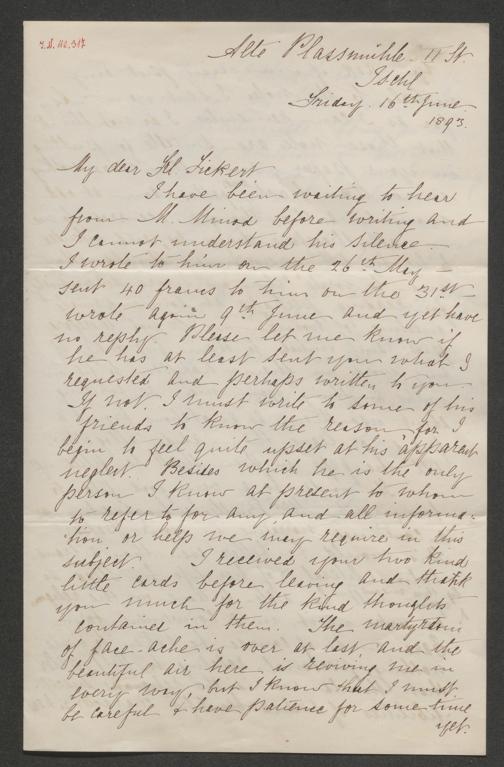 I.N. 110.317
Alte Plassmühle 11 St.
Ischl
Friday 16th June
1893.
My dear Frl. Fickert
I have been waiting to hear
from M. Minod before writing and
I cannot understand his silence —
I wrote to him on the 26th May —
sent 40 francs to him on the 31st —
wrote again 9th June and yet have
no reply. Please let me know if
he has at least sent you what I
requested and perhaps written to you
If not, I must write to some of his
friends to know the reason, for I
begin to feel quite upset at his apparent
neglect. Besides which he is the only
person I know at present to whom
to refer to for any and all informa-
tion or help we may require in this
subject I received your two kind
little cards before leaving and thank
you much for the kind thoughts
contained in them. The martyrdom
of face-ache is over at last and the
beautiful air here is reviving me in
every way, but I know that I must
be careful & have patience for some time
yet.